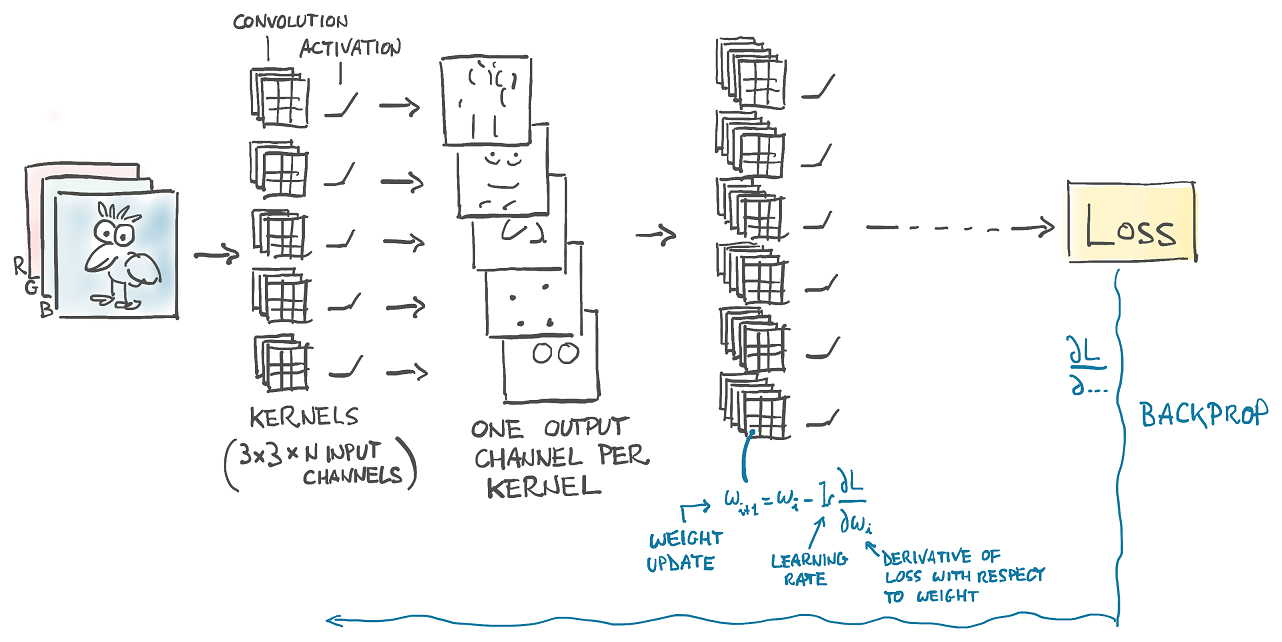 CONVOLUTION
ACTIVATION
R
G
B
KERNELS
(3×3×N INPUT
CHANNELS)
ONE OUTPUT
CHANNEL PER
KERNEL
LOSS
∂L
∂...
BACKPROP
ω_{i+1} = ω_i - lr ∂L
∂ω_i
WEIGHT
UPDATE
LEARNING
RATE
DERIVATIVE OF
LOSS WITH RESPECT
TO WEIGHT